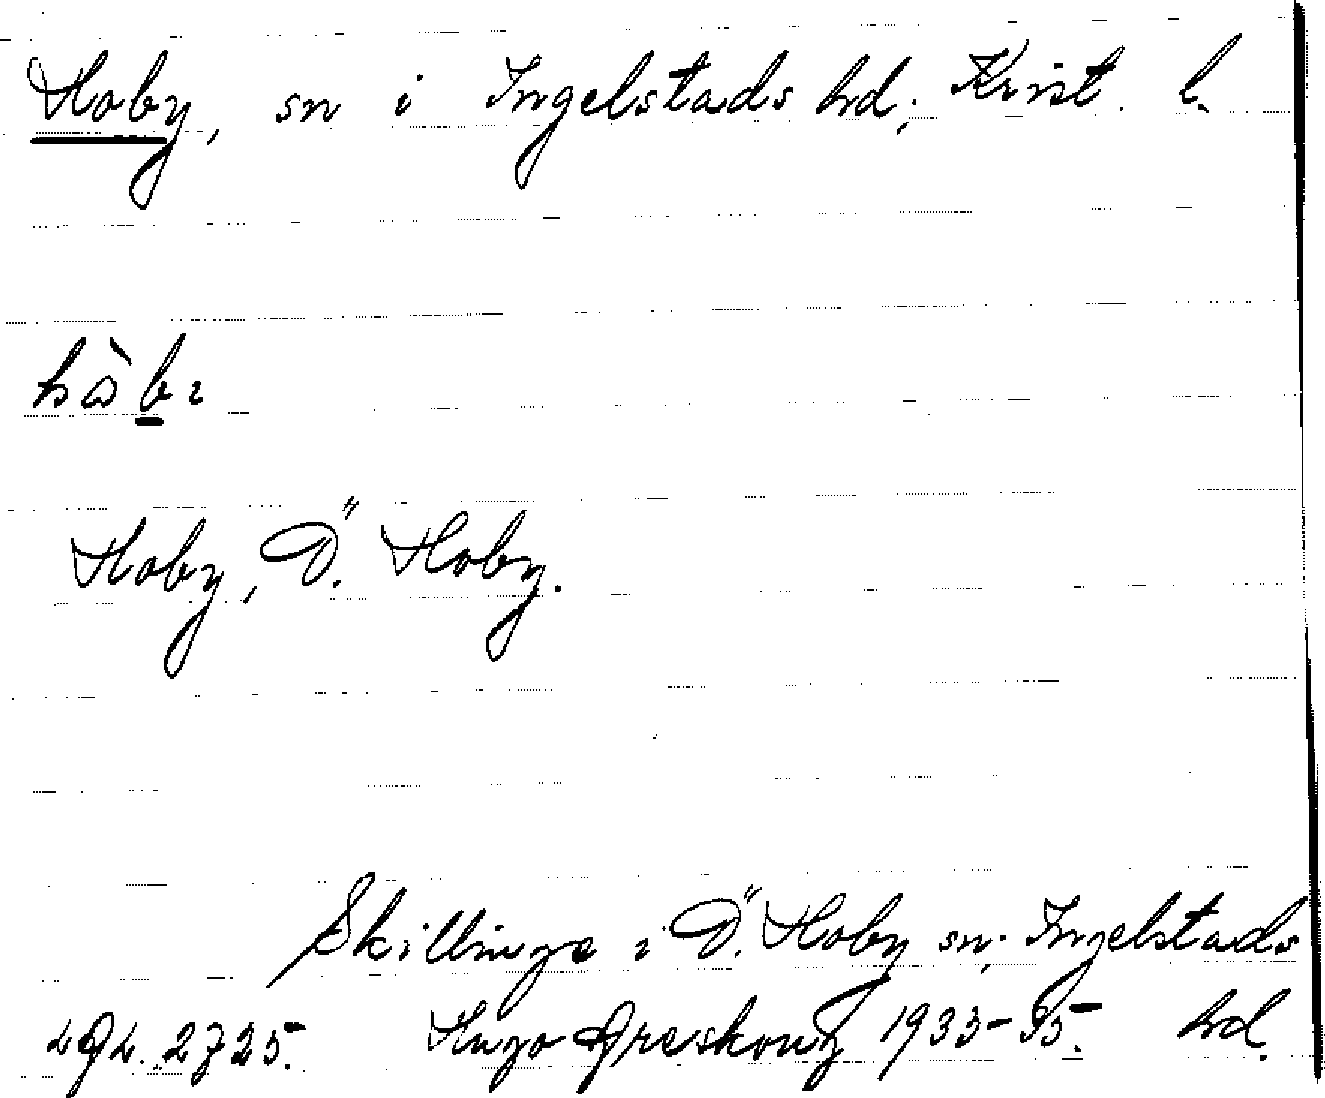 Hoby, sn i Ingelstads hd, Krist. l.
hòbı
Hoby, Ö. Hoby.
Skillinge i Ö. Hoby sn, Ingelstads
hd.
2725. Hugo Areskoug 1933-35.